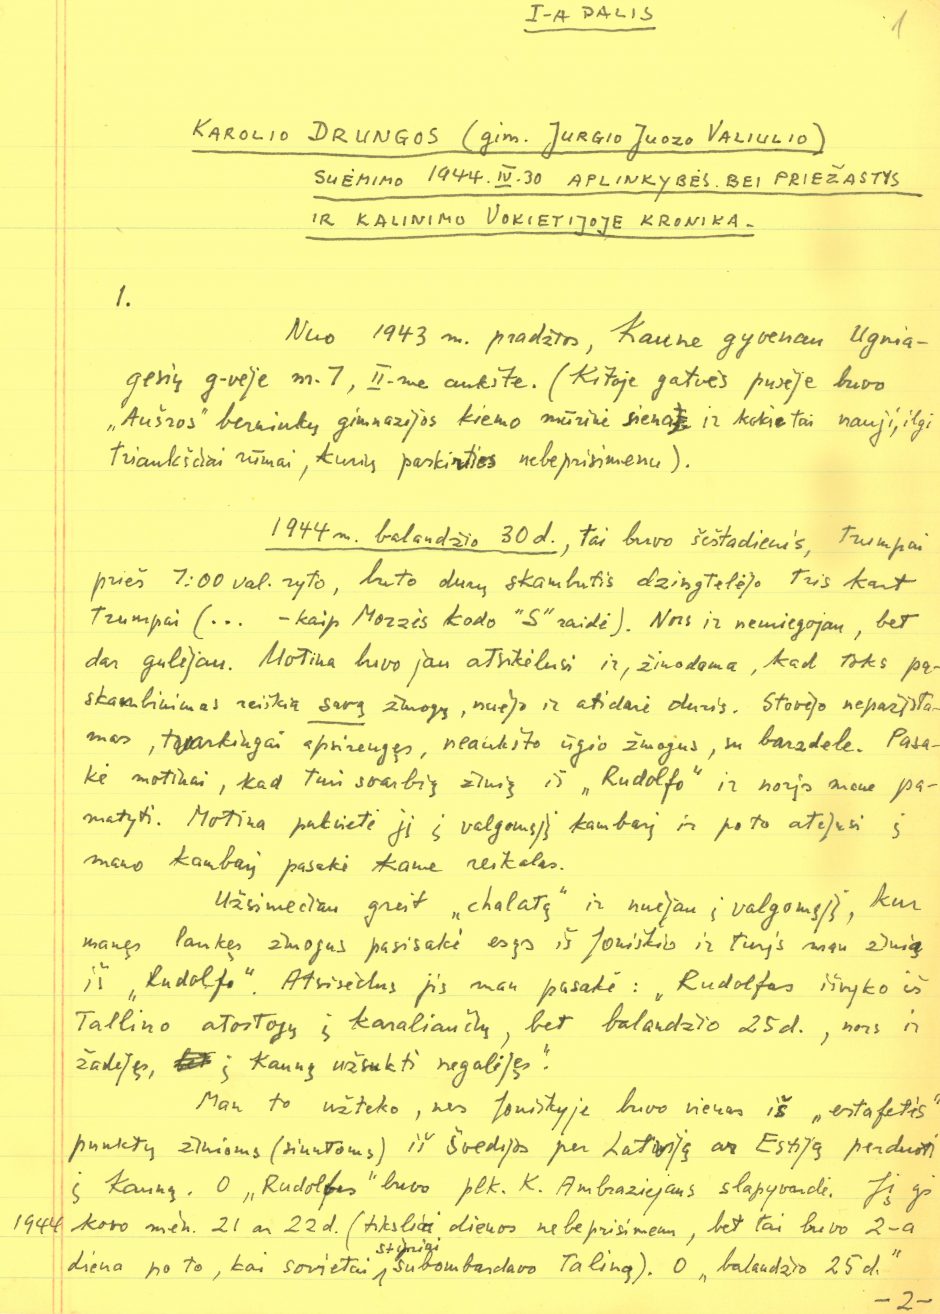 I-A DALIS
1
KAROLIO DRUNGOS (gim. JURGIO JUOZO VALIULIO)
SUĖMIMO 1944.IV.30 APLINKYBĖS BEI PRIEŽASTYS
IR KALINIMO VOKIETIJOJE KRONIKA.
1.
Nuo 1943 m. pradžios, Kaune gyvenau Ugnia-
gesių g-vėje nr. 7, II-me aukšte. (Kitoje gatvės pusėje buvo
„Aušros" berniukų gimnazijos kiemo mūrinė siena ir kokie tai nauji, ilgi
triaukščiai rūmai, kurių paskirties nebeprisimenu).
1944 m. balandžio 30 d., tai buvo šeštadienis, trumpai
prieš 7:00 val. ryto, buto durų skambutis dzingtelėjo tris kart
trumpai (... - kaip Morzės kodo "S" raidė). Nors ir nemiegojau, bet
dar gulėjau. Motina buvo jau atsikėlusi ir, žinodama, kad toks pa-
skambinimas reiškia savą žmogų, nuėjo ir atidarė duris. Stovėjo nepažįsta-
mas, tvarkingai apsirengęs, neaukšto ūgio žmogus, su barzdele. Pasa-
kė motinai, kad turi svarbių žinių iš „Rudolfo" ir norįs mane pa-
matyti. Motina pakvietė jį į valgomąjį kambarį ir po to atėjusi į
mano kambarį pasakė kame reikalas.
Užsimečiau greit „chalatą" ir nuėjau į valgomąjį, kur
manęs laukęs žmogus pasisakė esąs iš Joniškio ir turįs man žinią
iš „Rudolfo". Atsisėdus jis man pasakė: „Rudolfas išvyko iš
Tallino atostogų į Karaliaučių, bet balandžio 25 d., nors ir
žadėjęs, į Kauną užsukti negalėjęs".
Man to užteko, nes Joniškyje buvo vienas iš „estafetės"
punktų žinioms (siuntoms) iš Švedijos per Latviją ar Estiją perduoti
į Kauną. O „Rudolfas" buvo plk. K. Ambraziejaus slapyvardė. Jį gi
1944 kovo mėn. 21 ar 22 d. (tikslios dienos nebeprisimenu, bet tai buvo 2-a
diena po to, kai sovietai stipriai subombardavo Taliną). O „balandžio 25 d."
-2-